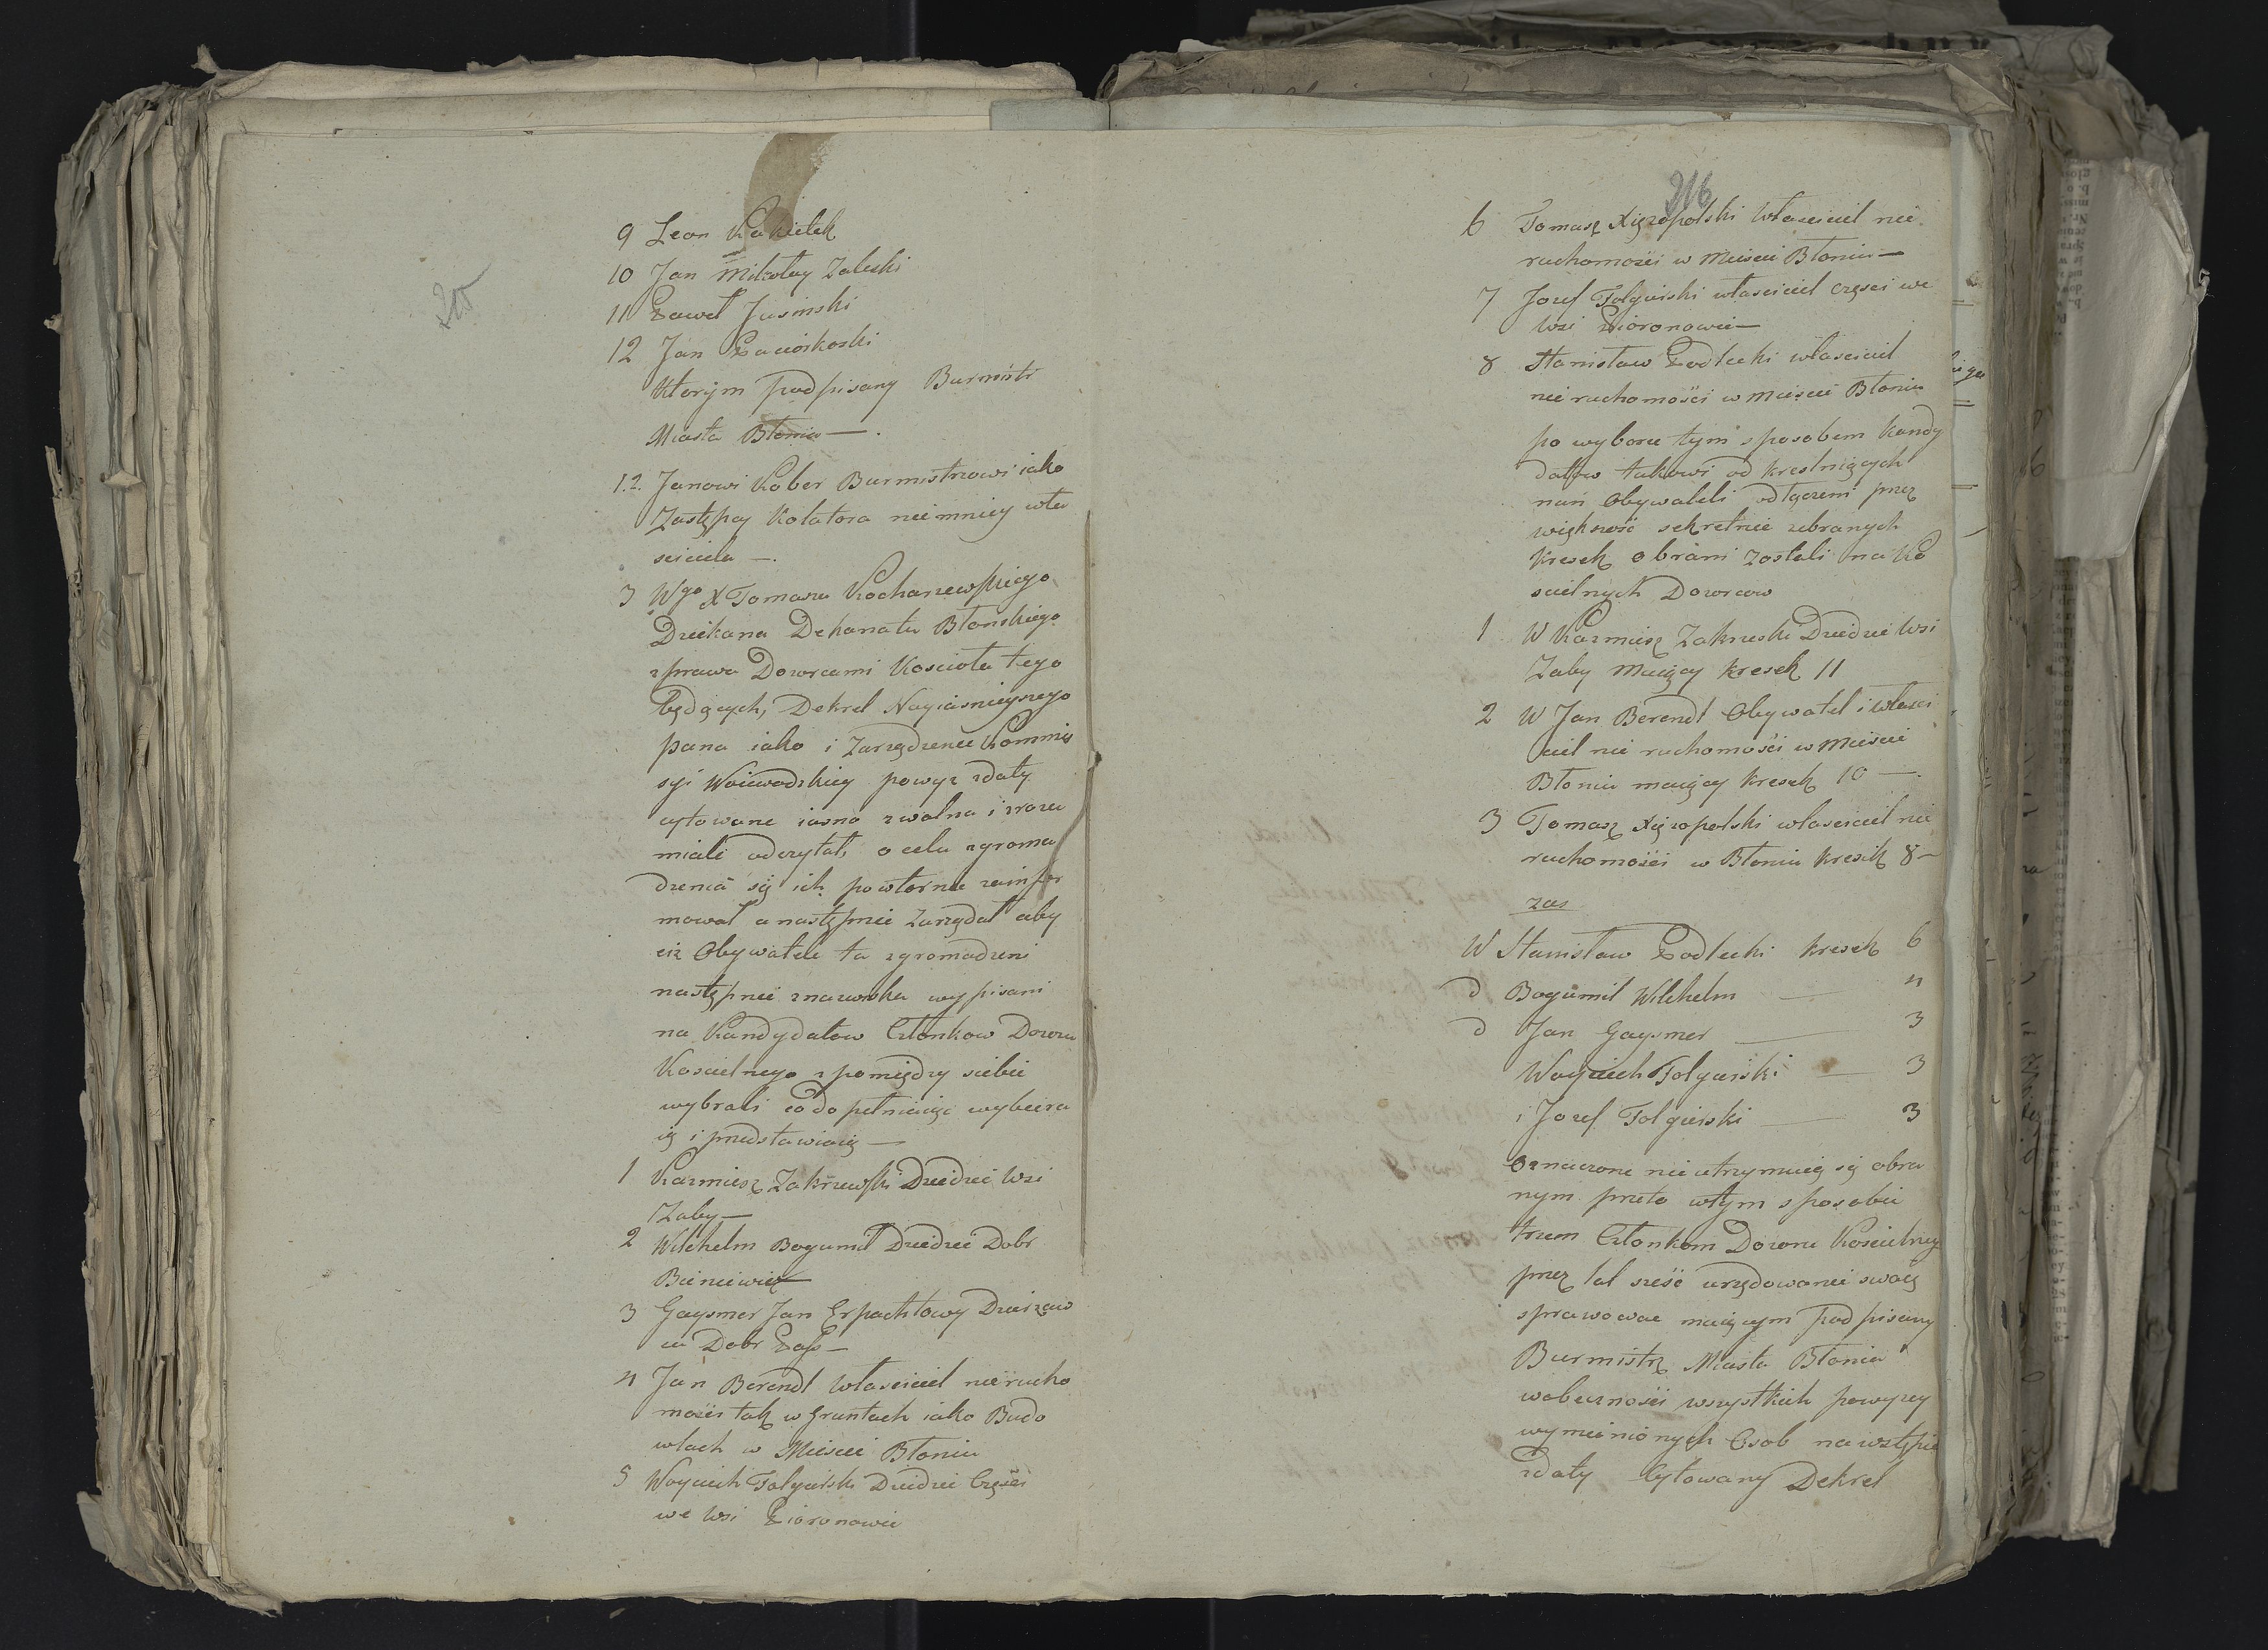 215
9 Leon Kakielek
10 Jan Mikołay Zaleski
11 Paweł Jusinski
12 Jan Pacioskoski
Którÿm podpisany Burmistr
Miasta Błonia —.
1.2. Janowi Kober Burmistrzowi iako
Zastępcy Kolatora nie mniey wła
sciciela —.
3 Wgo X Tomasza Kochanewskiego
Dziekana Dekanatu Błonskiego
z prawa Dozorcami Kosciota tego
będących, Dekret Nayiasnieyszego
pana iako i Zarządzenie Kommis
syi Woiewodzkiey powyz zdaty
cytowane iasno zwolna i zrozu
miale odczytał, o celu zgroma
dzenia się ich powtornie zainfor
mował a następnie Zarządał aby
ciz Obywatele tu zgromadzeni
następnie znazwiska wypisani
na Kandydatow Członkow Dozoru
Koscielnego z pomiędzy siebie
wybrali co dopełniaiąc wybiera
ią i przedstawiaią —
1 Kazmierz Zakrzewski Dziedzic Wsi
Zaby —
2 Wilchelm Bogumił Dziedzic Dobr
Bieniewic —
3 Gaysmer Jan Erpachtowy Dzierzaw
ca Dobr Pass —
4 Jan Berendt Własciciel nierucho
mosci tak w Gruntach iako Budo
wlach w Miescie Błoniu
5 Woyciech Folgierski Dziedzic Częsci
we wsi Piorunowie
216
6 Tomasz Xięzopolski Własciciel nie
ruchomości w Miescie Błoniu —
7 Jozef Folgierski własciciel częsci we
Wsi Piorunowie —
8 Stanisław Podlecki własciciel
nieruchomości w Miescie Błoniu
po wyborze tym sposobem Kandy
datow takowi od kreslniących
nań Obywateli odłączeni przez
większość sekretnie zebranych
Kresek obrani zostali na Ko
scielnych Dozorcow
1 W Kazmierz Zakrzeski Dziedzic Wsi
Zaby Maiący kresek 11
2 W Jan Berendt Obywatel i Własci
ciel nieruchomości w Miescie
Błoniu maiący kresek 10 —.
3 Tomasz Xięzopolski własciciel nie
ruchomości w Błoniu kresek 8 —
zas
W Stanisław Podlecki kresek 6
d Bogumil Wilchelm — 4
d Jan Gaysmer — 3
Woyciech Folgierski — 3
i Jozef Folgierski — 3
oznaczone nie utrzymuią się obra
nym przeto wtym sposobie
trzem Członkom Dozoru Koscielnego
przez lat sześć urzędowanie swoię
sprawować maiącym podpisany
Burmistrz Miasta Błonia
wobecnosci wszystkich powyzey
wymienionych Osob na wstępie
zdaty Cytowany Dekret